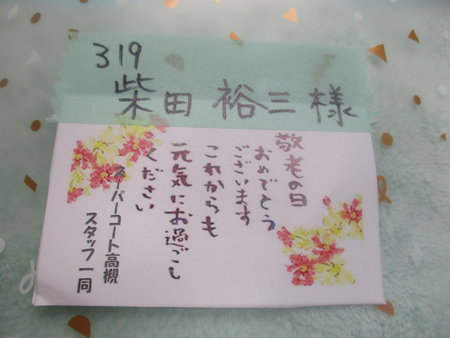 319
柴田裕三様
敬老の日
おめでとう
ございます
これからも
元気にお過ごし
ください
スーパーコート高槻
スタッフ一同